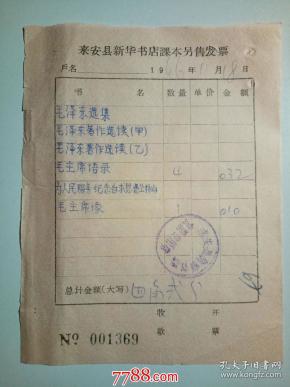 来安县新华书店課本另售发票
戶名 19 年 11月18日
书 名 数量 单价 金额
毛泽东选集
毛泽东著作选读(甲)
毛泽东著作选读(乙)
毛主席语录 4 032
为人民服务 纪念白求恩 愚公移山
毛主席像 1 010
总计金额(大写) 四角弍分
收 开
款 票
№ 001369
7788.com
孔夫子旧书网